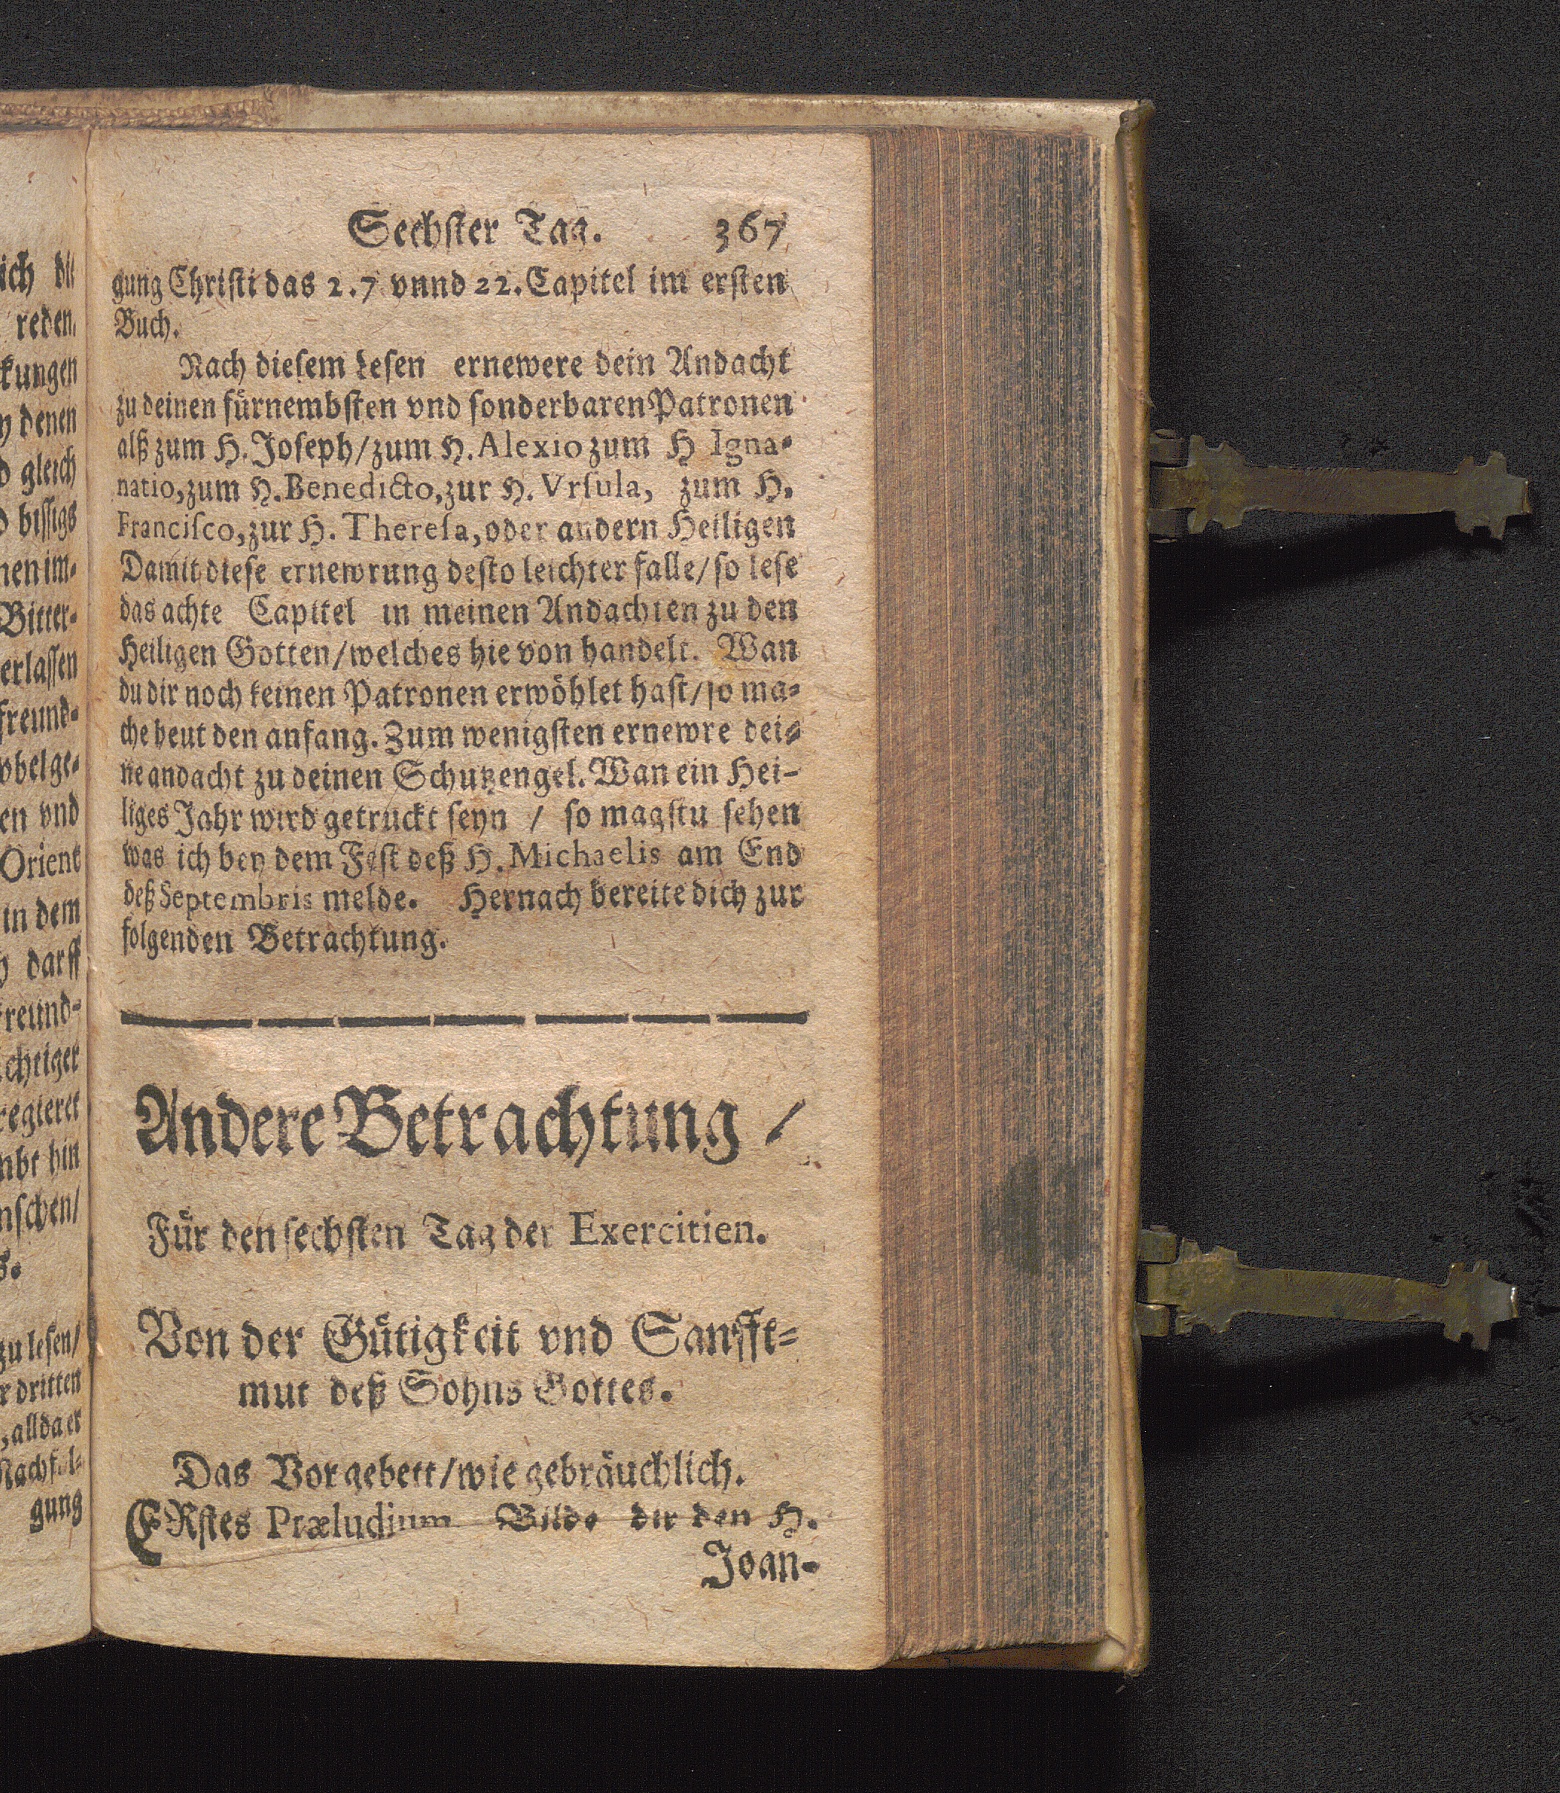 ich die
reden,
kungen
y denen
d gleich
d bissigs
nen im-
Bitter-
erlassen
freund-
vbelge-
en vnd
Orient
in dem
darff
freund-
chtiger
regieret
mbt hin
nschen/
s.
zu lesen/
r dritten
, allda er
Nachfol-
gung
Sechster Tag. 367
gung Christi das 2. 7 vnnd 22. Capitel im ersten
Buch.
Nach diesem Lesen ernewere dein Andacht
zu deinen fürnembsten vnd sonderbaren Patronen
alß zum H. Joseph/ zum H. Alexio zum H Igna-
natio, zum H. Benedicto, zur H. Vrsula, zum H.
Francisco, zur H. Theresa, oder andern Heiligen
Damit diese ernewrung desto leichter falle/ so lese
das achte Capitel in meinen Andachten zu den
Heiligen Gotten/ welches hie von handelt. Wan
du dir noch keinen Patronen erwöhlet hast/ so ma-
che heut den anfang. Zum wenigsten ernewre dei-
ne andacht zu deinen Schutzengel. Wan ein Hei-
liges Jahr wird getruckt seyn / so magstu sehen
was ich bey dem Fest deß H. Michaelis am End
deß Septembris melde. Hernach bereite dich zur
folgenden Betrachtung.
Andere Betrachtung /
Für den sechsten Tag der Exercitien.
Von der Gütigkeit vnd Sanfft-
mut deß Sohns Gottes.
Das Vorgebett/ wie gebräuchlich.
ERstes Præludium Bilde dir den H.
Joan-